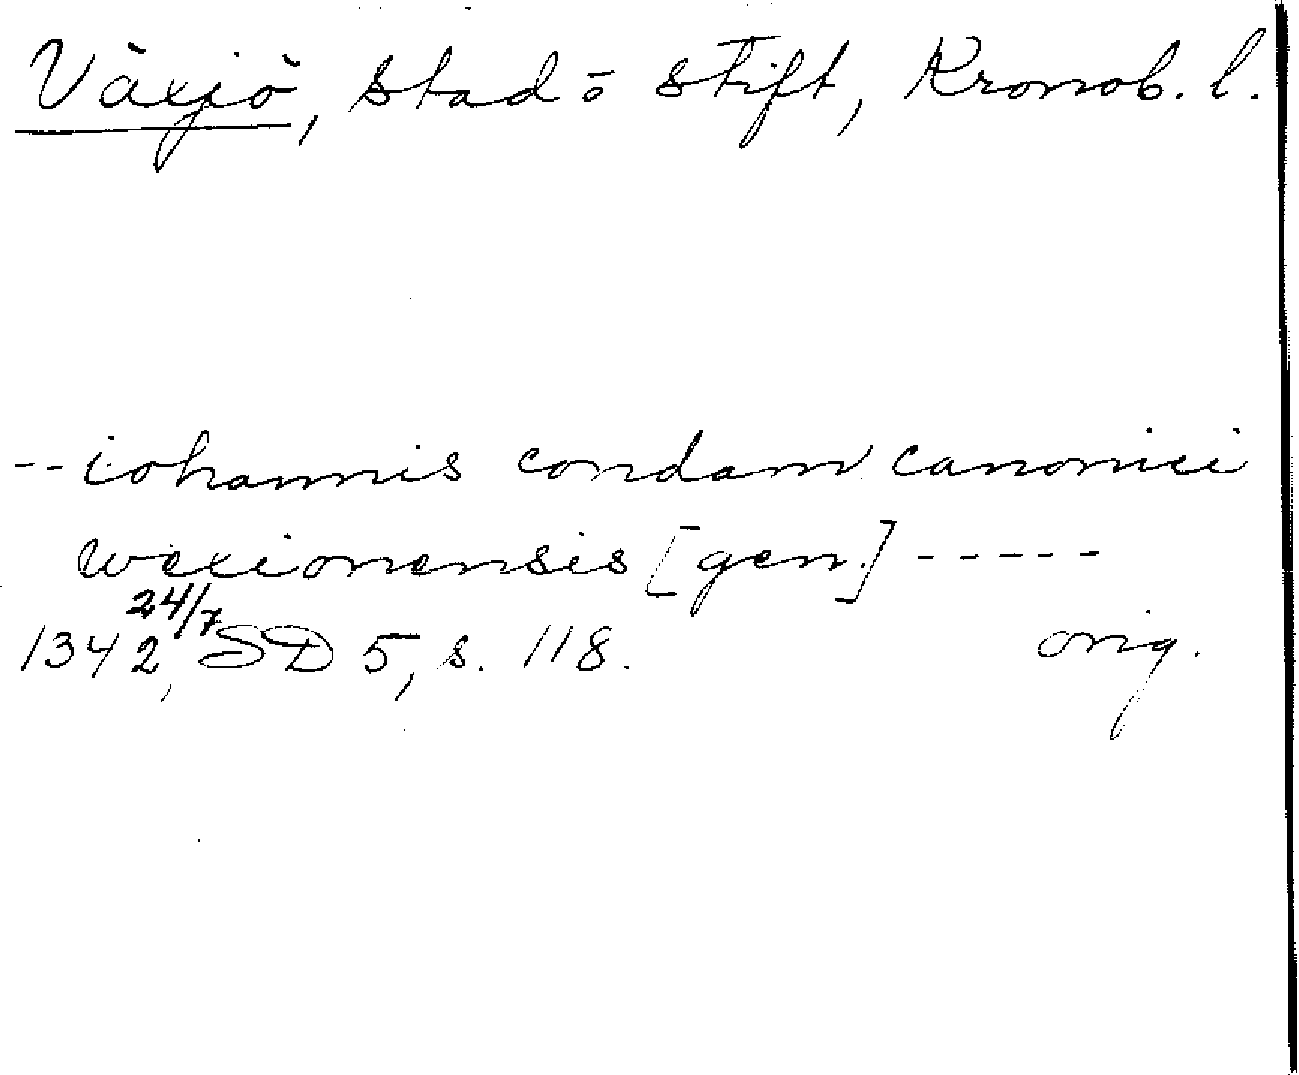 Växjö, stad o stift, Kronob. l.
-- iohannis condam canonici
wexionensis [gen.] -----
24/7
1342, SD 5, s. 118. orig.